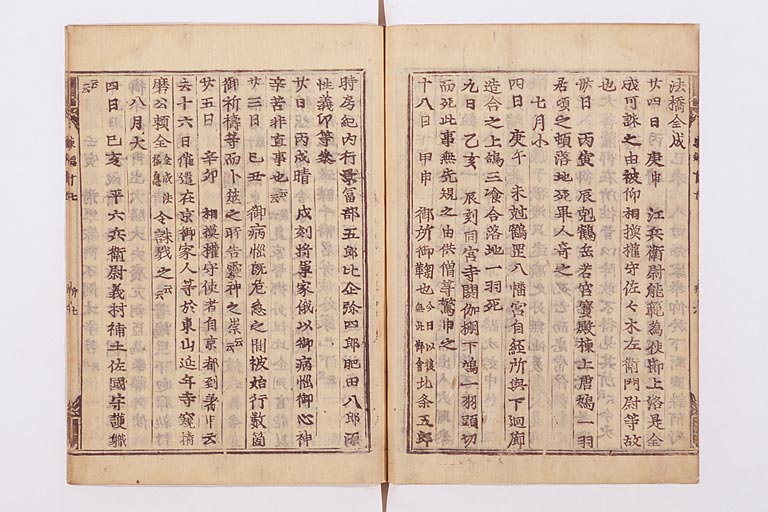 法橋全成
廿四日 庚申 江兵衛尉能範為使節上洛是全
成可誅之由被仰相摸權守佐々木左衛門尉等故
也
卅日 丙寅 辰剋鶴岳若宮寶殿棟上唐鳩一羽
居頃之頓落地死畢人奇之
七月小
四日 庚午 未剋鶴罡八幡宮自經所與下迴廊
造合之上鴿三喰合落地一羽死
九日 乙亥 辰刻同宮寺閼伽棚下鳩一羽頭切
而死此事無先規之由供僧等驚申之
十八日 甲申 御所御鞠也今日以後無此御會北条五郎
時房紀内行景冨部五郎比企弥四郎肥田八郎源
性義印等參
廿日 丙戌晴 戌刻將軍家俄以御病惱御心神
辛苦非直事也云云
廿三日 己丑 御病惱既危急之間被始行數箇
御祈禱等而卜筮之所告靈神之崇云云
廿五日 辛卯 相摸權守使者自京都到著申云
去十六日催遣在京御家人等於東山延年寺窺播
磨公頼全全成法橋息令誅戮之云云
八月大
四日 己亥 平六兵衛尉義村補土佐國守護職
云云